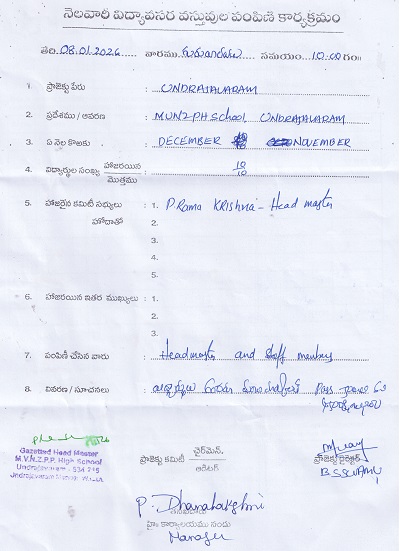 నెలవారీ విద్యావసర వస్తువుల పంపిణీ కార్యక్రమం
తేది: 08.01.2026 వారము గురువారము సమయం 10:00 గం॥
1. ప్రాజెక్టు పేరు : UNDRAJAVARAM
2. ప్రదేశము / ఆవరణ : MVNZPH School, UNDRAJAVARAM
3. ఏ నెల కొఱకు : DECEMBER NOVEMBER
4. విద్యార్థుల సంఖ్య హాజరయిన / మొత్తము : 10/10
5. హాజరైన కమిటీ సభ్యులు : 1. P. Rama Krishna - Head master
హోదాతో 2.
3.
4.
5.
6. హాజరయిన ఇతర ముఖ్యులు : 1.
2.
3.
7. పంపిణీ చేసిన వారు : Headmaster and Staff members
8. వివరణ / సూచనలు :
Gazetted Head Master
M.V.N.Z.P.P. High School
Undrajavaram - 534 216
Undrajavaram Mandal
ప్రాజెక్టు కమిటీ ఛైర్మెన్, / ఆడిటర్
ప్రాజెక్టు డైరెక్టర్
B.S. SWAMY
P. Dhanalakshmi
హైం కార్యాలయము నందు
Manager